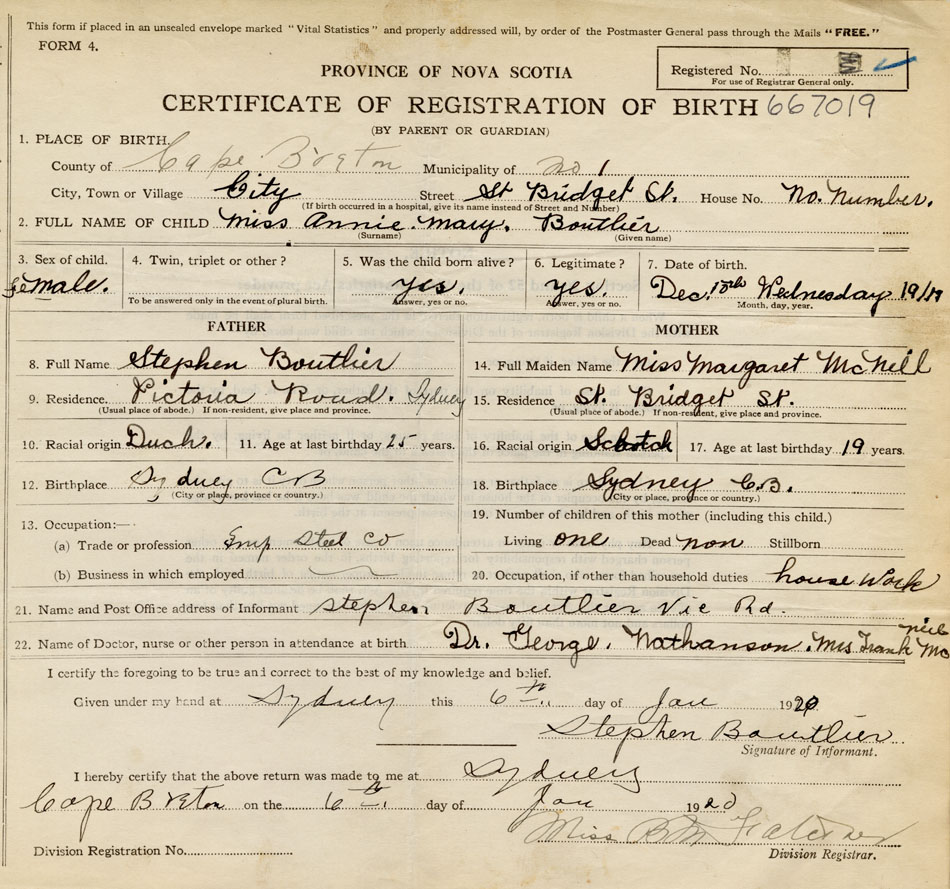 This form if placed in an unsealed envelope marked "Vital Statistics" and properly addressed will, by order of the Postmaster General pass through the Mails "FREE."
FORM 4.
Registered No.
For use of Registrar General only.
PROVINCE OF NOVA SCOTIA
CERTIFICATE OF REGISTRATION OF BIRTH 667019
(BY PARENT OR GUARDIAN)
1. PLACE OF BIRTH.
County of Cape Breton Municipality of no 1
City, Town or Village City Street St Bridget St. House No. No. Number.
(If birth occurred in a hospital, give its name instead of Street and Number)
2. FULL NAME OF CHILD Miss Annie. Mary. Boutlier
(Surname) (Given name)
3. Sex of child. 4. Twin, triplet or other? 5. Was the child born alive? 6. Legitimate? 7. Date of birth.
female. yes. yes. Dec. Wednesday 19/19
To be answered only in the event of plural birth. Answer, yes or no. Answer, yes or no. Month, day, year.
FATHER MOTHER
8. Full Name Stephen Boutlier
14. Full Maiden Name Miss Margaret McNeill
9. Residence. Victoria Road. Sydney
15. Residence St. Bridget St.
(Usual place of abode.) If non-resident, give place and province.
(Usual place of abode.) If non-resident, give place and province.
10. Racial origin Duch. 11. Age at last birthday 25 years.
16. Racial origin Scotch 17. Age at last birthday 19 years.
12. Birthplace Sydney CB
(City or place, province or country.)
18. Birthplace Sydney C.B.
(City or place, province or country.)
13. Occupation:—
(a) Trade or profession Emp Steel Co
(b) Business in which employed
19. Number of children of this mother (including this child.)
Living one Dead non Stillborn
20. Occupation, if other than household duties house Work
21. Name and Post Office address of Informant Stephen Boutlier Vic Rd.
22. Name of Doctor, nurse or other person in attendance at birth Dr. George. Nathanson. Mrs Frank Mc neil
I certify the foregoing to be true and correct to the best of my knowledge and belief.
Given under my hand at Sydney this 6th day of Jan 1920.
Stephen Boutlier
Signature of Informant.
I hereby certify that the above return was made to me at Sydney
Cape Breton on the 6th. day of Jan 1920
Miss B M
Division Registration No.
Division Registrar.